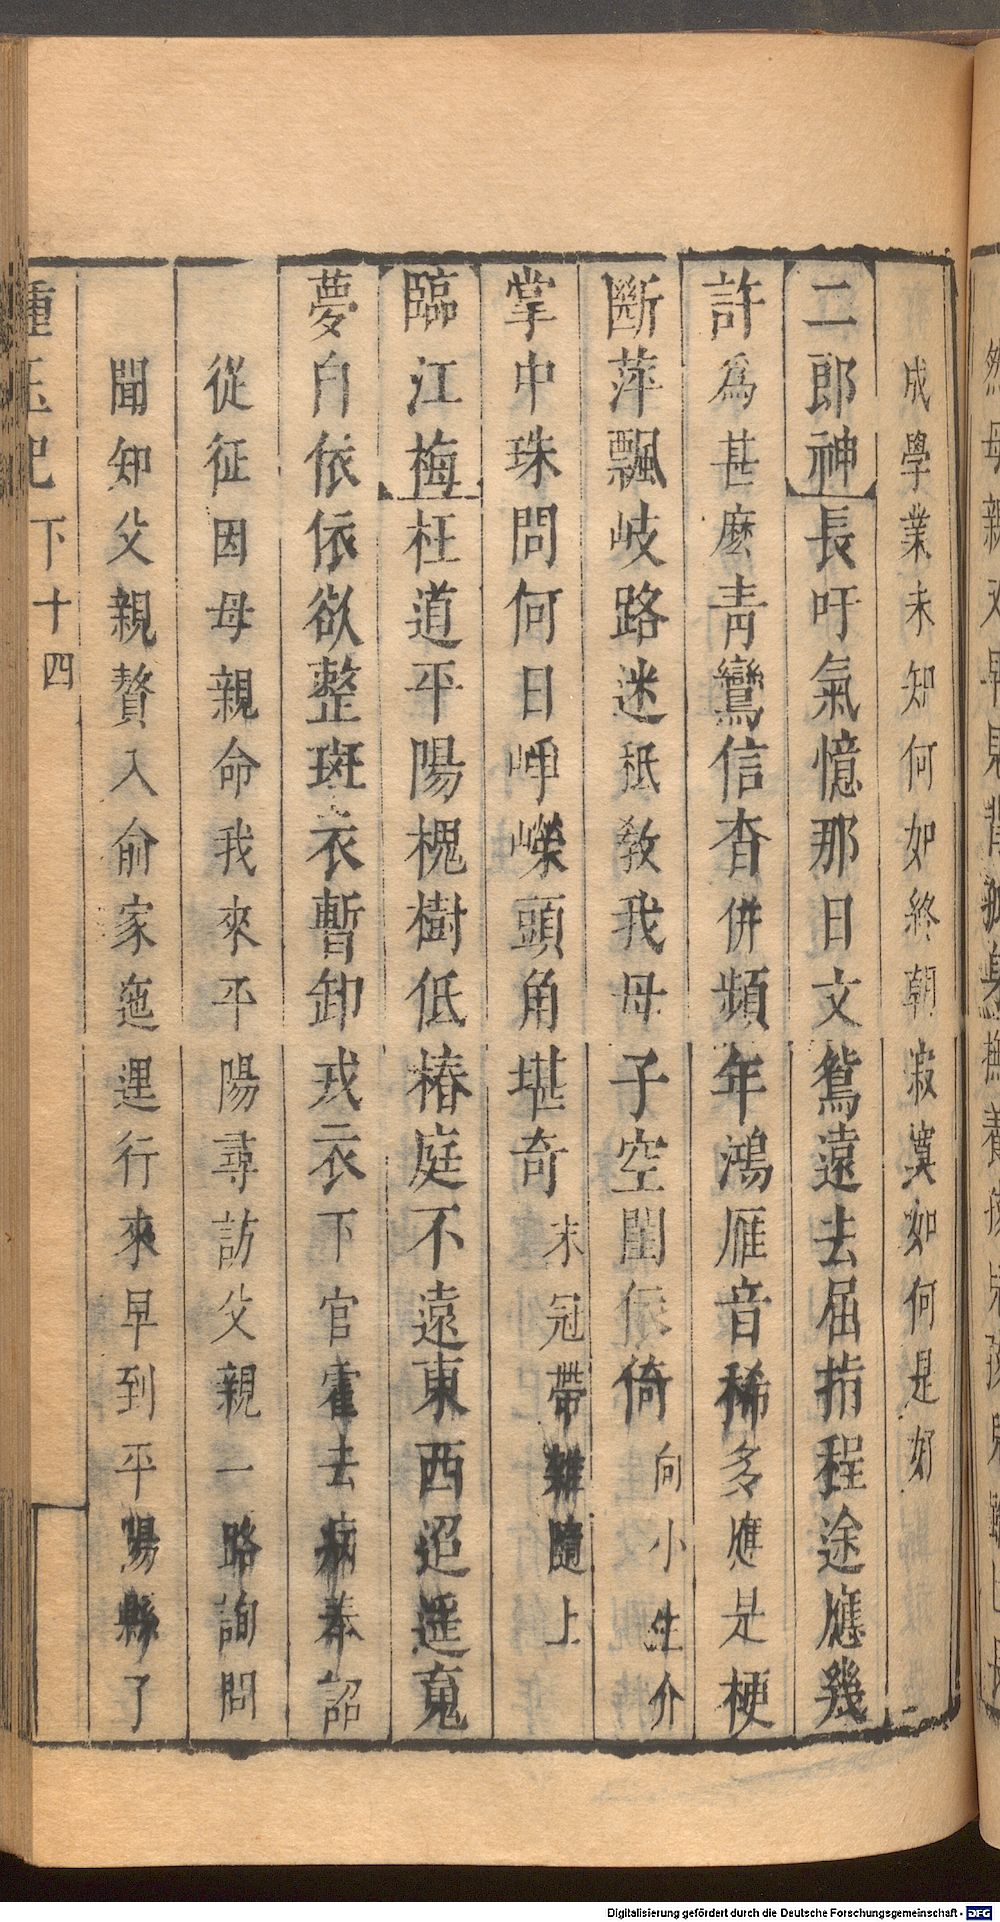 成學業未知何如終朝寂寞如何是好
二郎神長吁氣憶那日文鴛遠去屈指程途應幾
許爲甚麽青鸞信杳併頻年鴻雁音稀多應是梗
斷萍飄岐路迷秪教我母子空閨依倚向小生介
掌中珠問何日崢嶸頭角堪奇末冠帶雜隨上
臨江梅枉道平陽槐樹低椿庭不遠東西迢遥寬
夢白依依欲整斑衣暫卸戎衣下官霍去病奉詔
從征因母親命我來平陽尋訪父親一路詢問
聞知父親贅入俞家迤逦行來早到平陽縣了
種玉記 下十四
Digitalisierung gefördert durch die Deutsche Forschungsgemeinschaft - DFG